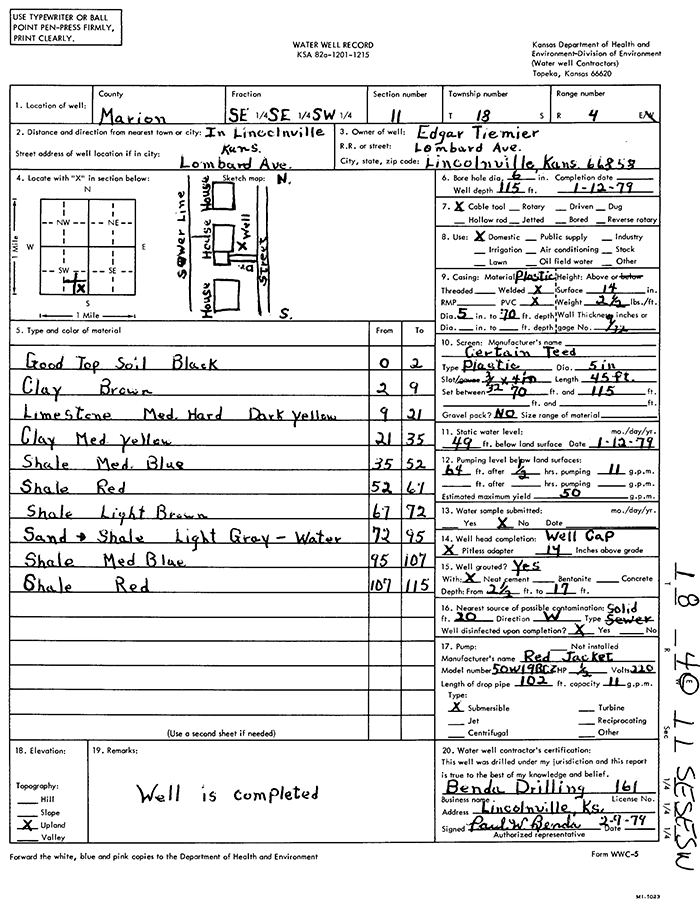 USE TYPEWRITER OR BALL
POINT PEN-PRESS FIRMLY,
PRINT CLEARLY.
WATER WELL RECORD
KSA 82a-1201-1215
Kansas Department of Health and
Environment-Division of Environment
(Water well Contractors)
Topeka, Kansas 66620
1. Location of well:
County
Marion
Fraction
SE 1/4 SE 1/4 SW 1/4
Section number
11
Township number
T 18 S
Range number
R 4 E/W
2. Distance and direction from nearest town or city: In Lincolnville
Kans.
Street address of well location if in city:
Lombard Ave.
3. Owner of well: Edgar Tiemier
R.R. or street: Lombard Ave.
City, state, zip code: Lincolnville, Kans. 66858
4. Locate with "X" in section below:
N
NW NE
W E
SW SE
X
S
1 Mile
1 Mile
Sketch map: N.
Sewer Line
House
House
House
X Well
Street
S.
5. Type and color of material From To
Good Top Soil Black 0 2
Clay Brown 2 9
Limestone Med. Hard Dark yellow 9 21
Clay Med yellow 21 35
Shale Med. Blue 35 52
Shale Red 52 67
Shale Light Brown 67 72
Sand & Shale Light Gray - Water 72 95
Shale Med Blue 95 107
Shale Red 107 115
(Use a second sheet if needed)
6. Bore hole dia. 6 in. Completion date
Well depth 115 ft. 1-12-79
7. X Cable tool Rotary Driven Dug
Hollow rod Jetted Bored Reverse rotary
8. Use: X Domestic Public supply Industry
Irrigation Air conditioning Stock
Lawn Oil field water Other
9. Casing: Material Plastic Height: Above or below
Threaded Welded X Surface 14 in.
RMP PVC X Weight 2 1/2 lbs./ft.
Dia. 5 in. to 70 ft. depth Wall Thickness inches or
Dia. in. to ft. depth gage No.
10. Screen: Manufacturer's name
Certain Teed
Type Plastic Dia. 5 in
Slot/gauze Length 45 ft.
Set between 70 ft. and 115 ft.
ft. and ft.
Gravel pack? NO Size range of material
11. Static water level: mo./day/yr.
49 ft. below land surface Date 1-12-79
12. Pumping level below land surfaces:
64 ft. after 1/2 hrs. pumping 11 g.p.m.
ft. after hrs. pumping g.p.m.
Estimated maximum yield 50 g.p.m.
13. Water sample submitted: mo./day/yr.
Yes X No Date
14. Well head completion: Well Cap
X Pitless adapter 14 Inches above grade
15. Well grouted? Yes
With: X Neat cement Bentonite Concrete
Depth: From 2 1/2 ft. to 17 ft.
16. Nearest source of possible contamination: Solid
ft. 20 Direction W Type Sewer
Well disinfected upon completion? X Yes No
17. Pump: Not installed
Manufacturer's name Red Jacket
Model number 50W19BCZ HP 1/2 Volts 220
Length of drop pipe 102 ft. capacity 11 g.p.m.
Type:
X Submersible Turbine
Jet Reciprocating
Centrifugal Other
18. Elevation:
Topography:
Hill
Slope
X Upland
Valley
19. Remarks:
Well is completed
20. Water well contractor's certification:
This well was drilled under my jurisdiction and this report
is true to the best of my knowledge and belief.
Benda Drilling 161
Business name License No.
Address Lincolnville, Ks.
Signed Paul W Benda Date 2-9-79
Authorized representative
Forward the white, blue and pink copies to the Department of Health and Environment
Form WWC-5
T R E W Sec 1/4 1/4 1/4
18 - 4 E 11 SESESW